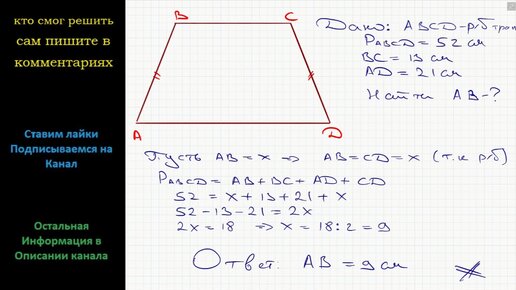 кто смог решить
сам пишите в
комментариях
Ставим лайки
Подписываемся на
Канал
Остальная
Информация в
Описании канала
B
C
A
D
Дано: ABCD-р/б трап
PABCD = 52 см
BC = 13 см
AD = 21 см
Найти AB-?
Пусть AB = x => AB=CD=x (т.к р/б)
PABCD = AB+BC+AD+CD
52 = x+13+21+x
52-13-21=2x
2x=18 => x=18:2=9
Ответ: AB=9см